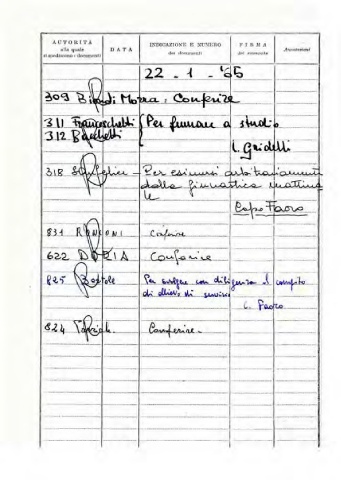 AUTORITÀ
alla quale
si spediscono i documenti
DATA
INDICAZIONE E NUMERO
dei documenti
FIRMA
del ricevente
Annotazioni
22 - 1 - 55
309 Biondi Morra: Conferire
311 Franceschetti Per fumare a studio
312 Banchetti
C. Gridelli
318 Sanfelice - Per esimersi arbitrariamente
dalla ginnastica mattina
le
Capo Faoro
831 RONCONI Conferire
622 DORIA Conferire
825 Per svolgere con diligenza il compito
di allievo di servizio
C. Faoro
824 Conferire -